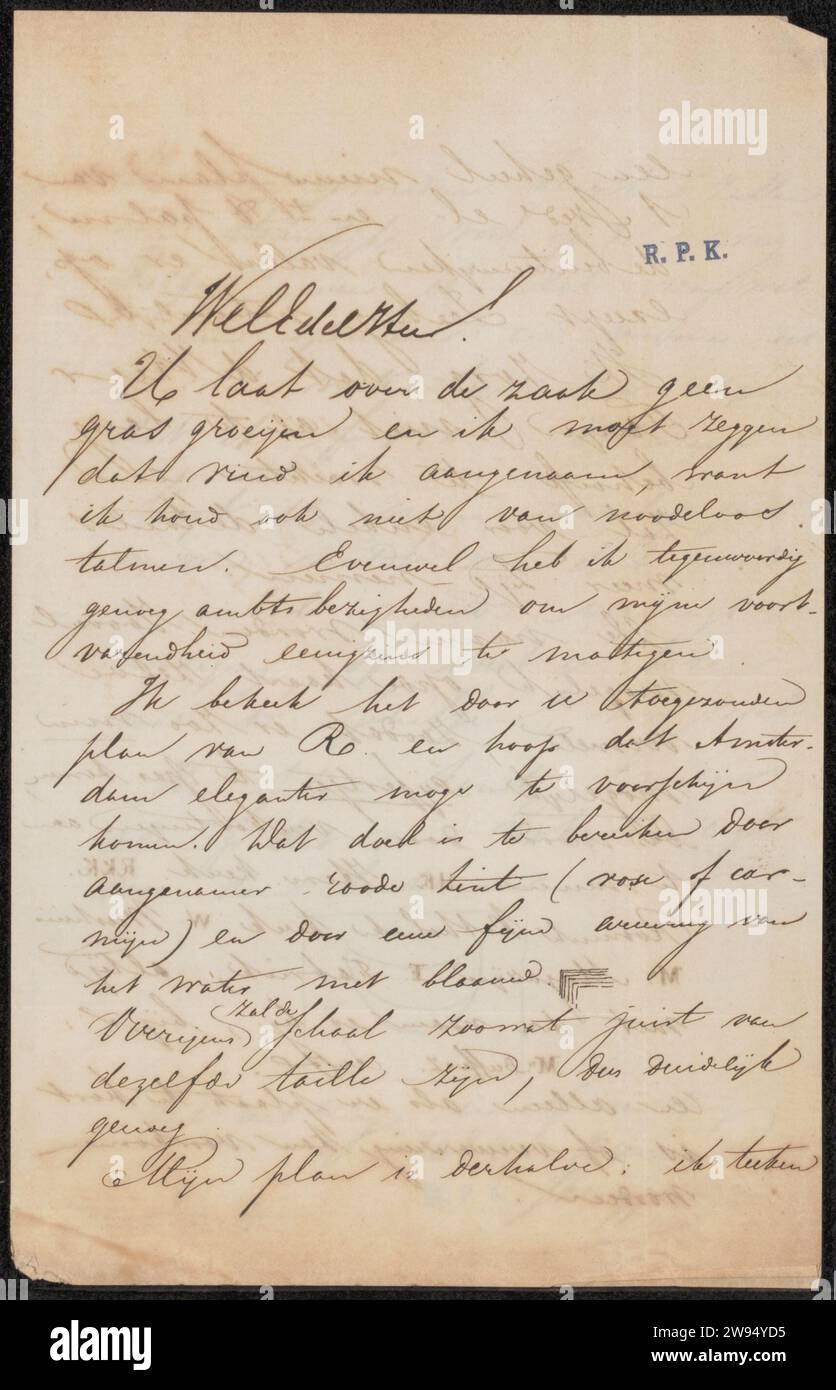 R. P. K.
WelEdele Heer!
U laat over de zaak geen
gras groeijen en ik moet zeggen
dat vind ik aangenaam, want
ik houd ook niet van noodeloos
talmen. Evenwel heb ik tegenwoordig
genoeg ambtsbezigheden om mijne voort-
varendheid eenigzins te matigen.
Ik bekeek het door u toegezonden
plan van R. en hoop dat Amster-
dam eleganter moge te voorschijn
komen. Wat doel is te bereiken door
aangenamer roode tint (rose of car-
mijn) en door eene fijne arcering van
het water met blaauw.
Overigens zal de schaal zoowat juist van
dezelfde taille zijn, dus duidelijk
genoeg.
Mijn plan is derhalve: ik teeken
alamy
Image ID: 2W94YD5
www.alamy.com